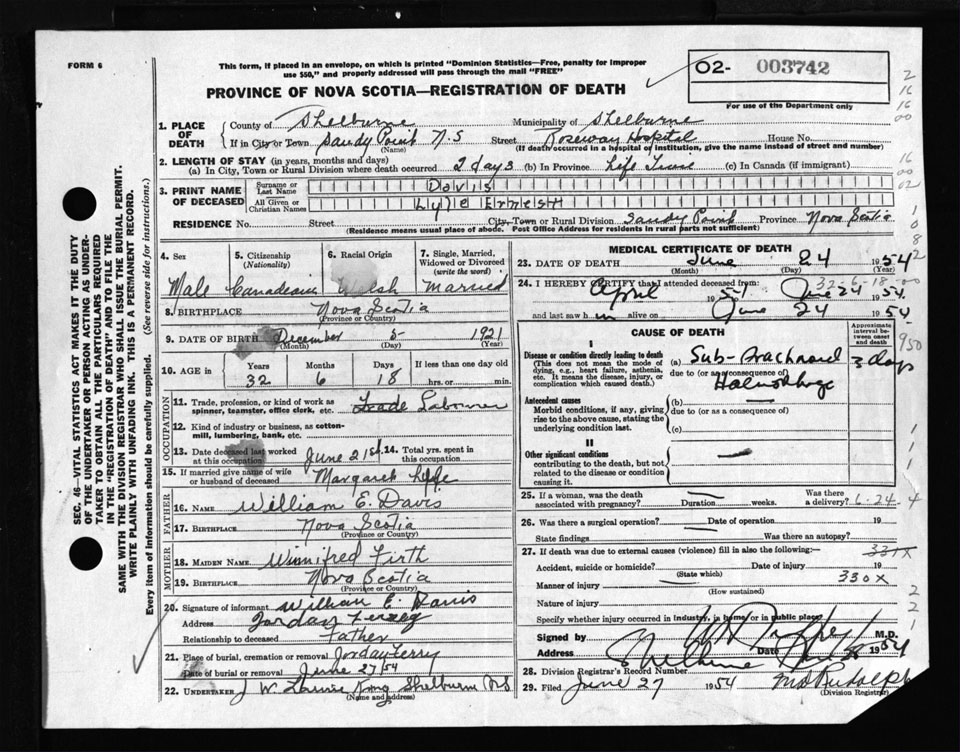 FORM 6
This form, if placed in an envelope, on which is printed "Dominion Statistics—Free, penalty for improper
use $50," and properly addressed will pass through the mail "FREE"
O2- 003742
For use of the Department only
PROVINCE OF NOVA SCOTIA—REGISTRATION OF DEATH
1. PLACE OF DEATH County of Shelburne Municipality of Shelburne
If in City or Town Sandy Point N.S Street Roseway Hospital House No.
(Name) (If death occurred in a hospital or institution, give the name instead of street and number)
2. LENGTH OF STAY (in years, months and days)
(a) In City, Town or Rural Division where death occurred 2 days (b) In Province Life Time (c) In Canada (if immigrant)
3. PRINT NAME OF DECEASED Surname or Last Name Davis
All Given or Christian Names Lyle Ernest
RESIDENCE No. Street City-Town or Rural Division Sandy Point Province Nova Scotia
(Residence means usual place of abode. Post Office Address for residents in rural parts not sufficient)
4. Sex Male
5. Citizenship (Nationality) Canadian
6. Racial Origin Welsh
7. Single, Married, Widowed or Divorced (write the word) Married
8. BIRTHPLACE Nova Scotia
(Province or Country)
9. DATE OF BIRTH December 5 1921
(Month) (Day) (Year)
10. AGE in Years 32 Months 6 Days 18 If less than one day old
hrs. or min.
OCCUPATION
11. Trade, profession, or kind of work as
spinner, teamster, office clerk, etc. Laborer
12. Kind of industry or business, as cotton-
mill, lumbering, bank, etc.
13. Date deceased last worked
at this occupation June 21st
14. Total yrs. spent in
this occupation
15. If married give name of wife
or husband of deceased Margaret
FATHER
16. NAME William E. Davis
17. BIRTHPLACE Nova Scotia
(Province or Country)
MOTHER
18. MAIDEN NAME Winnifred Firth
19. BIRTHPLACE Nova Scotia
(Province or Country)
20. Signature of informant William E. Davis
Address Jordan Ferry
Relationship to deceased Father
21. Place of burial, cremation or removal Jordan Ferry
Date of burial or removal June 27 54
22. UNDERTAKER J W Shelburne N.S
(Name and address)
MEDICAL CERTIFICATE OF DEATH
23. DATE OF DEATH June 24 1954
(Month) (Day) (Year)
24. I HEREBY CERTIFY that I attended deceased from: 32-6-18-00
April 1951 June 24 1954
and last saw h im alive on June 24 1954
CAUSE OF DEATH
Approximate interval between onset and death
I
Disease or condition directly leading to death
(This does not mean the mode of
dying, e.g., heart failure, asthenia,
etc. It means the disease, injury, or
complication which caused death.)
(a) Sub-Arachnoid 3 days
due to (or as a consequence of)
Antecedent causes
Morbid conditions, if any, giving
rise to the above cause, stating the
underlying condition last.
(b)
due to (or as a consequence of)
(c)
II
Other significant conditions
contributing to the death, but not
related to the disease or condition
causing it.
25. If a woman, was the death
associated with pregnancy? Duration weeks. Was there
a delivery? 6-24-4
26. Was there a surgical operation? Date of operation 19
State findings Was there an autopsy?
27. If death was due to external causes (violence) fill in also the following:— 331X
Accident, suicide or homicide? Date of injury 19
(State which) 330X
Manner of injury
(How sustained)
Nature of injury
Specify whether injury occurred in industry, in home or in public place
Signed by M.D.
Address Shelburne Date 1954
28. Division Registrar's Record Number
29. Filed June 27 1954 M D Rudolph
(Division Registrar)
SEC. 46—VITAL STATISTICS ACT MAKES IT THE DUTY
OF THE UNDERTAKER OR PERSON ACTING AS UNDER-
TAKER TO OBTAIN ALL THE PARTICULARS REQUIRED
IN THE "REGISTRATION OF DEATH" AND TO FILE THE
SAME WITH THE DIVISION REGISTRAR WHO SHALL ISSUE THE BURIAL PERMIT.
WRITE PLAINLY WITH UNFADING INK. THIS IS A PERMANENT RECORD.
Every item of information should be carefully supplied. (See reverse side for instructions.)